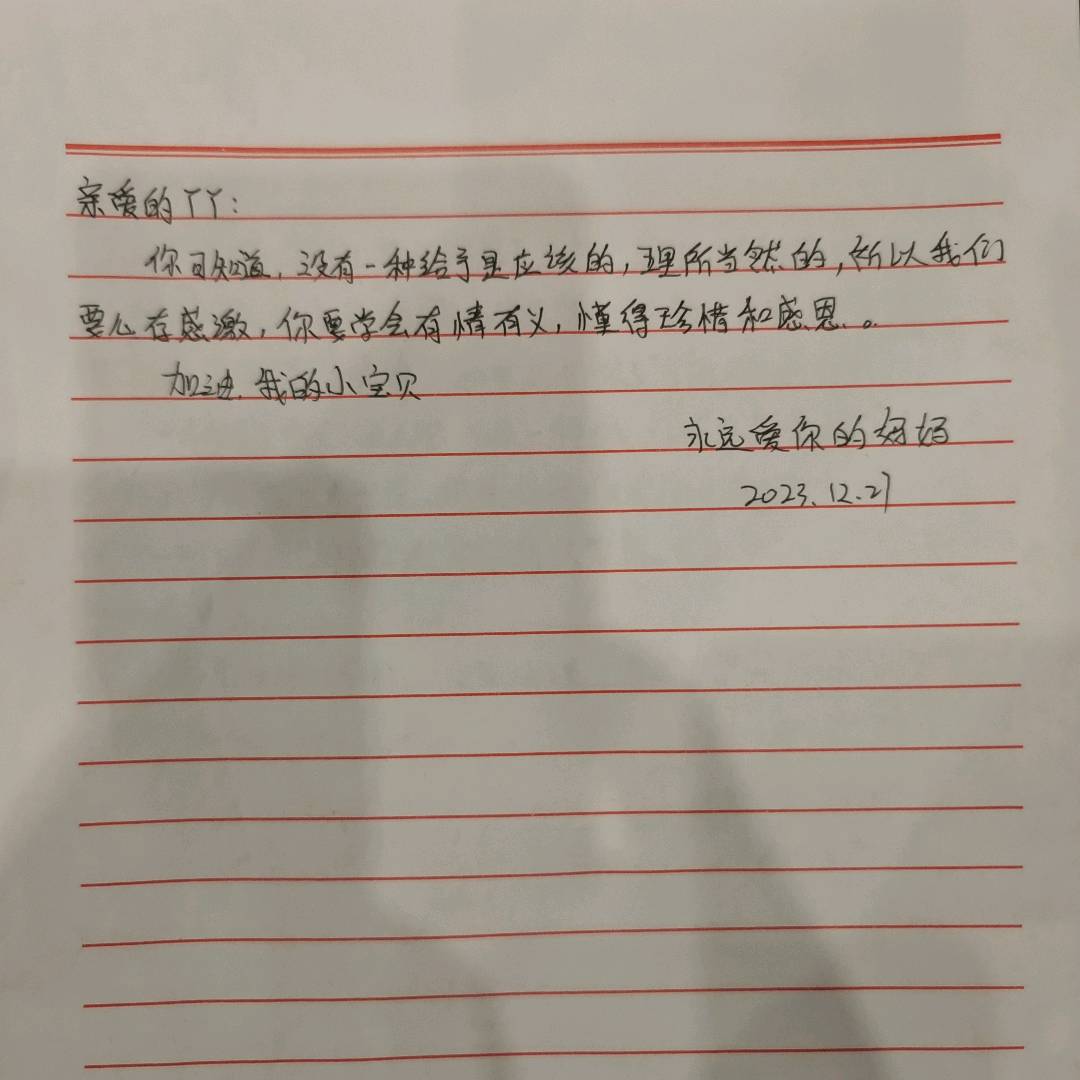 亲爱的丫丫：
你可知道，没有一种给予是应该的，理所当然的，所以我们
要心存感激，你要学会有情有义，懂得珍惜和感恩。
加油，我的小宝贝
永远爱你的妈妈
2023.12.27